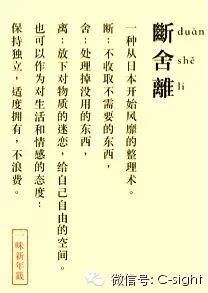 斷舍離
duàn
shě
lí
一种从日本开始风靡的整理术。
断：不收取不需要的东西，
舍：处理掉没用的东西，
离：放下对物质的迷恋，给自己自由的空间。
也可以作为对生活和情感的态度：
保持独立，适度拥有，不浪费。
一味新年籤
微信号: C-sight